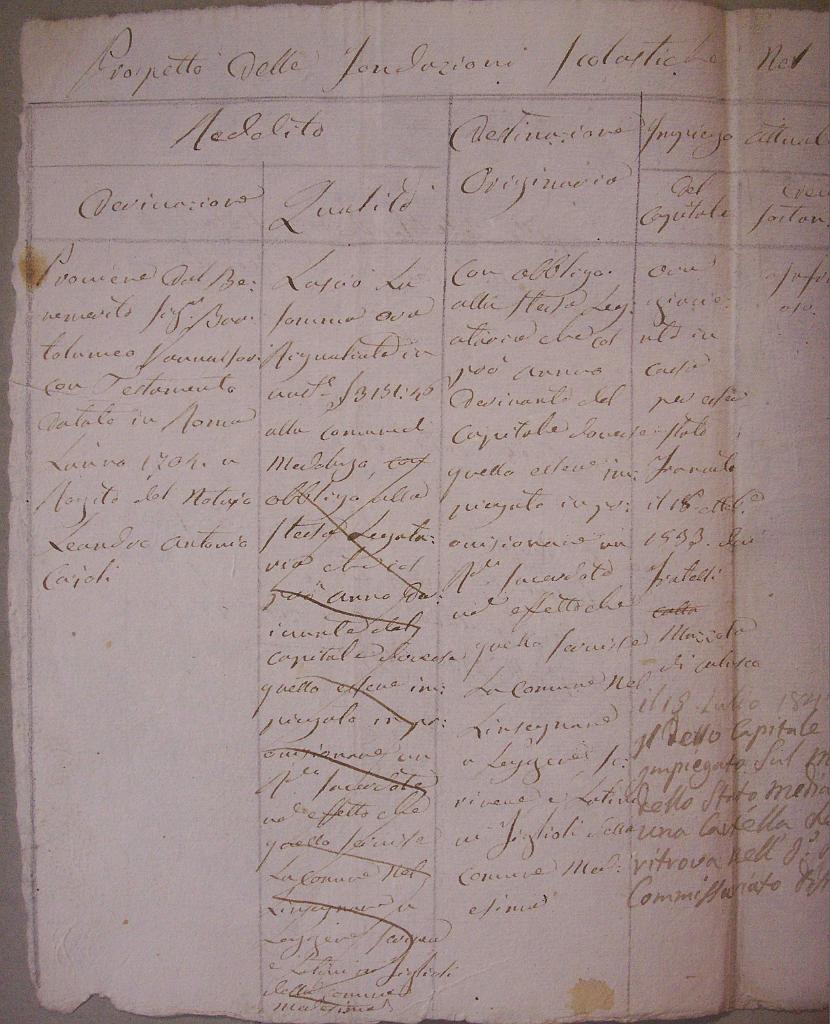 Prospetto Delle Fondazioni Scolastiche Nel
Medolito
Derivazione
Qualità
Destinazione
Originaria
Impiego attual
del
Capitale
Proviene Dal Be:
nemerito Sig.r Bar:
tolomeo
con Testamento
Datato in Roma
L'anno 1704. a
Rogito del Notaio
Leandro Antonio
Casoli
Lasciò La
somma ora
Acquialente in
£ 3151:46
alla Comune di
Medolago, con
obbligo alla
stessa Legata:
ria che col
pro' annuo De:
rivante dal
Capitale dovesse
quello essere im:
piegato in pro:
visionare un
R.do Sacerdote
ad effetto che
quello servisse
La Comune Nel
L'insegnare a
Leggere scrivere
e Latini ai figlioli
della Comune
medesima
Con obbligo
alla stessa Leg:
ataria che col
pro' annuo
Derivante dal
Capitale dovesse
quello essere im:
piegato in pro:
visionare un
R.do Sacerdote
ad effetto che
quello servisse
La Comune Nel
L'insegnare
a Leggere Sc:
rivere e Latini
ai figlioli della
Comune Med:
esima
ora
giacie:
nte in
Cassa
per esser
stato
Francato
il 18
1833. dai
fratelli
Mazzola
di
il 18 Luglio
il detto Capitale
impiegato Sul M
dello Stato media
una Cartella de
ritrova nell'
Commissariato dis